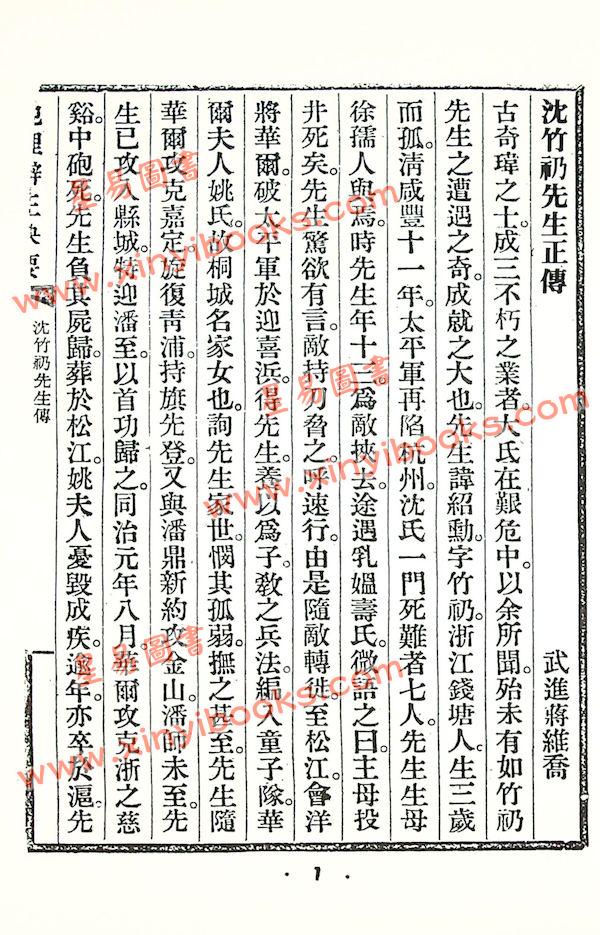 沈竹礽先生正傳
武進蔣維喬
古奇瑋之士。成三不朽之業者。大氐在艱危中。以余所聞。殆未有如竹礽
先生之遭遇之奇。成就之大也。先生諱紹勳。字竹礽。浙江錢塘人。生三歲
而孤。清咸豐十一年。太平軍再陷杭州。沈氏一門死難者七人。先生生母
徐孺人與焉。時先生年十三。爲敵挾去。途遇乳媼壽氏。微語之曰。主母投
井死矣。先生驚欲有言。敵持刃脅之。呼速行。由是隨敵轉徙。至松江。會洋
將華爾。破太平軍於迎喜浜。得先生。養以爲子。敎之兵法。編入童子隊。華
爾夫人姚氏。故桐城名家女也。詢先生家世。憫其孤弱。撫之甚至。先生隨
華爾攻克嘉定。旋復靑浦。持旗先登。又與潘鼎新約攻金山。潘師未至。先
生已攻入縣城。特迎潘至。以首功歸之。同治元年八月。華爾攻克浙之慈
谿。中砲死。先生負其屍歸。葬於松江。姚夫人憂毀成疾。逾年亦卒於滬。先
沈竹礽先生傳
· 1 ·
星易圖書
www.xinyibooks.com
星易圖書
www.xinyibooks.com
星易圖書
www.xinyibooks.com